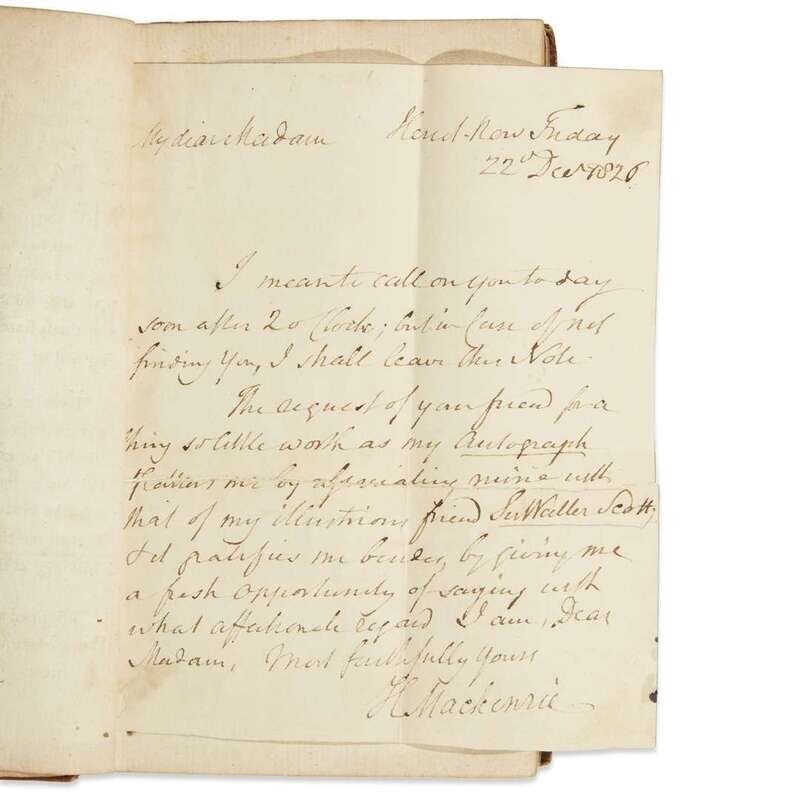 My dear Madam Heriot-Row Friday
22d Decr 1826
I mean to call on you to day
soon after 2 o Clock; but in Case of not
finding You, I shall leave this Note
The request of your friend for a
thing so little worth as my Autograph
flatters me by associating mine with
that of my illustrious friend Sir Walter Scott,
& it gratifies me besides, by giving me
a fresh opportunity of saying with
what affectionate regard I am, Dear
Madam, Most faithfully Yours
H Mackenzie